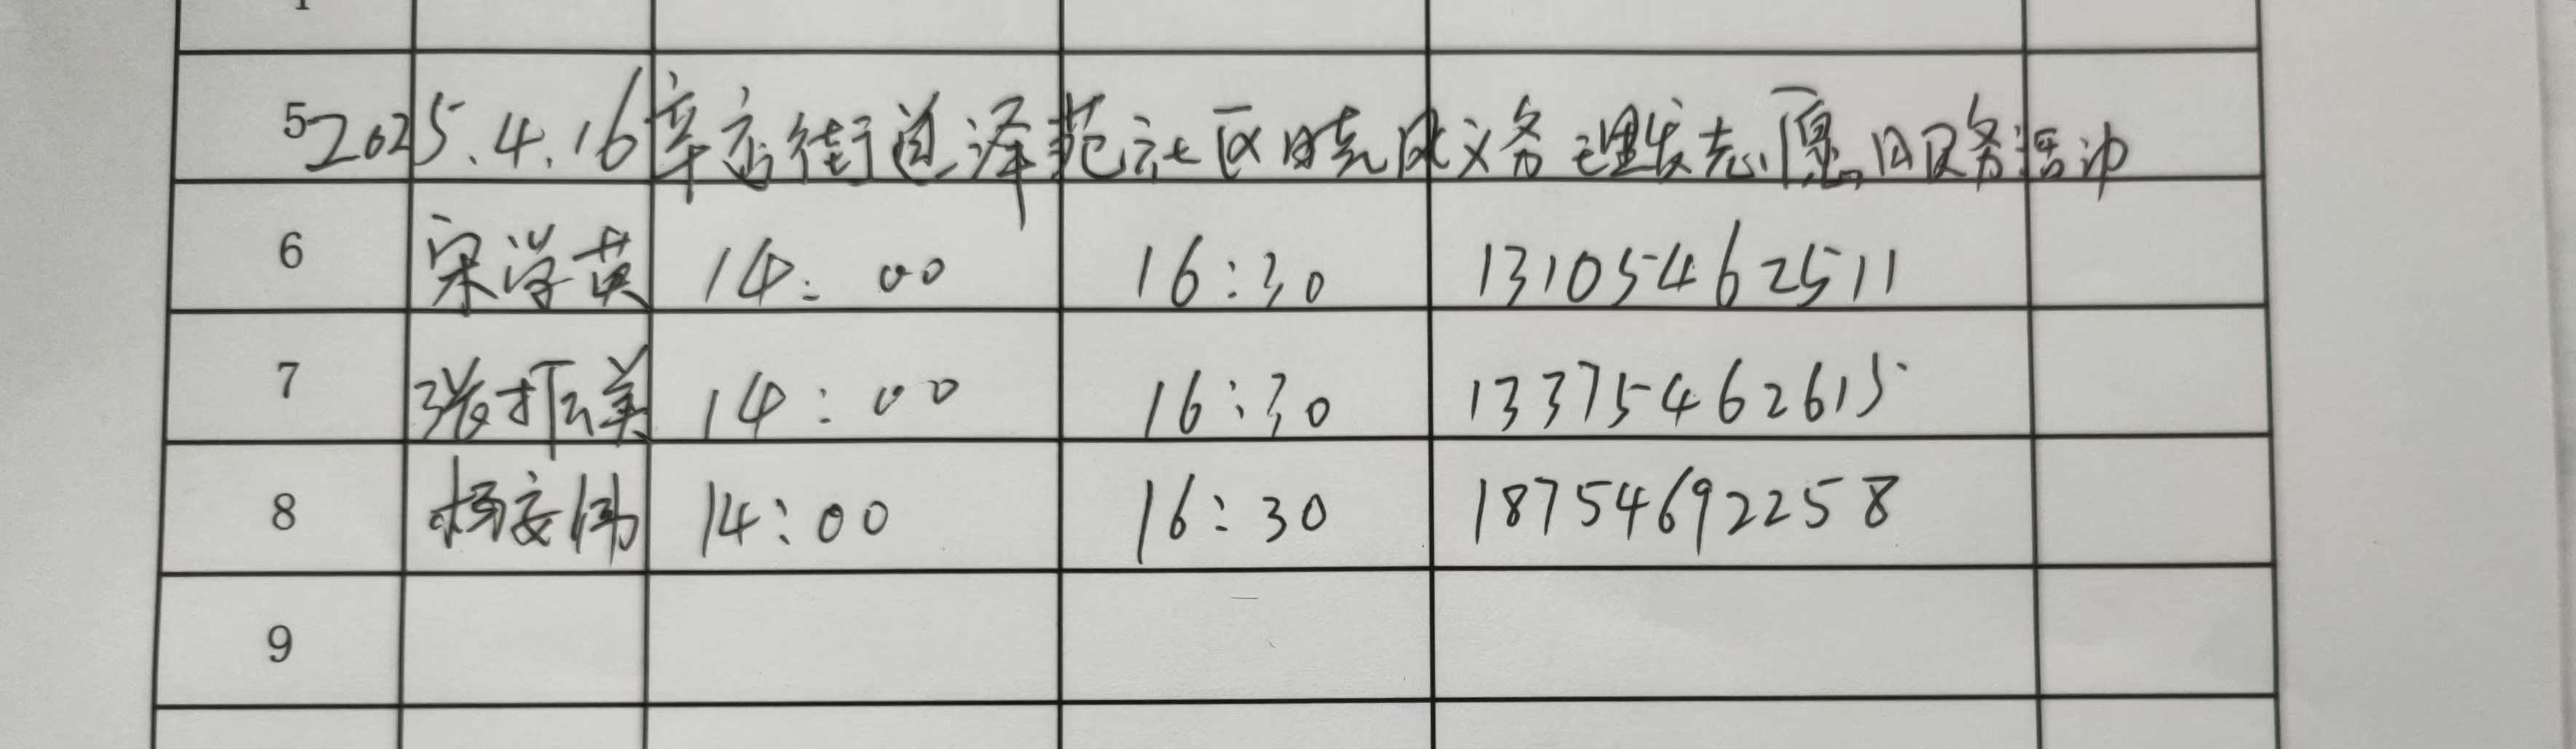 5 2025.4.16辛店街道泽苑社区晓风义务理发志愿服务活动
6 宋学英 14:00 16:30 13105462511
7 张振美 14:00 16:30 13375462615
8 杨安伟 14:00 16:30 18754692258
9